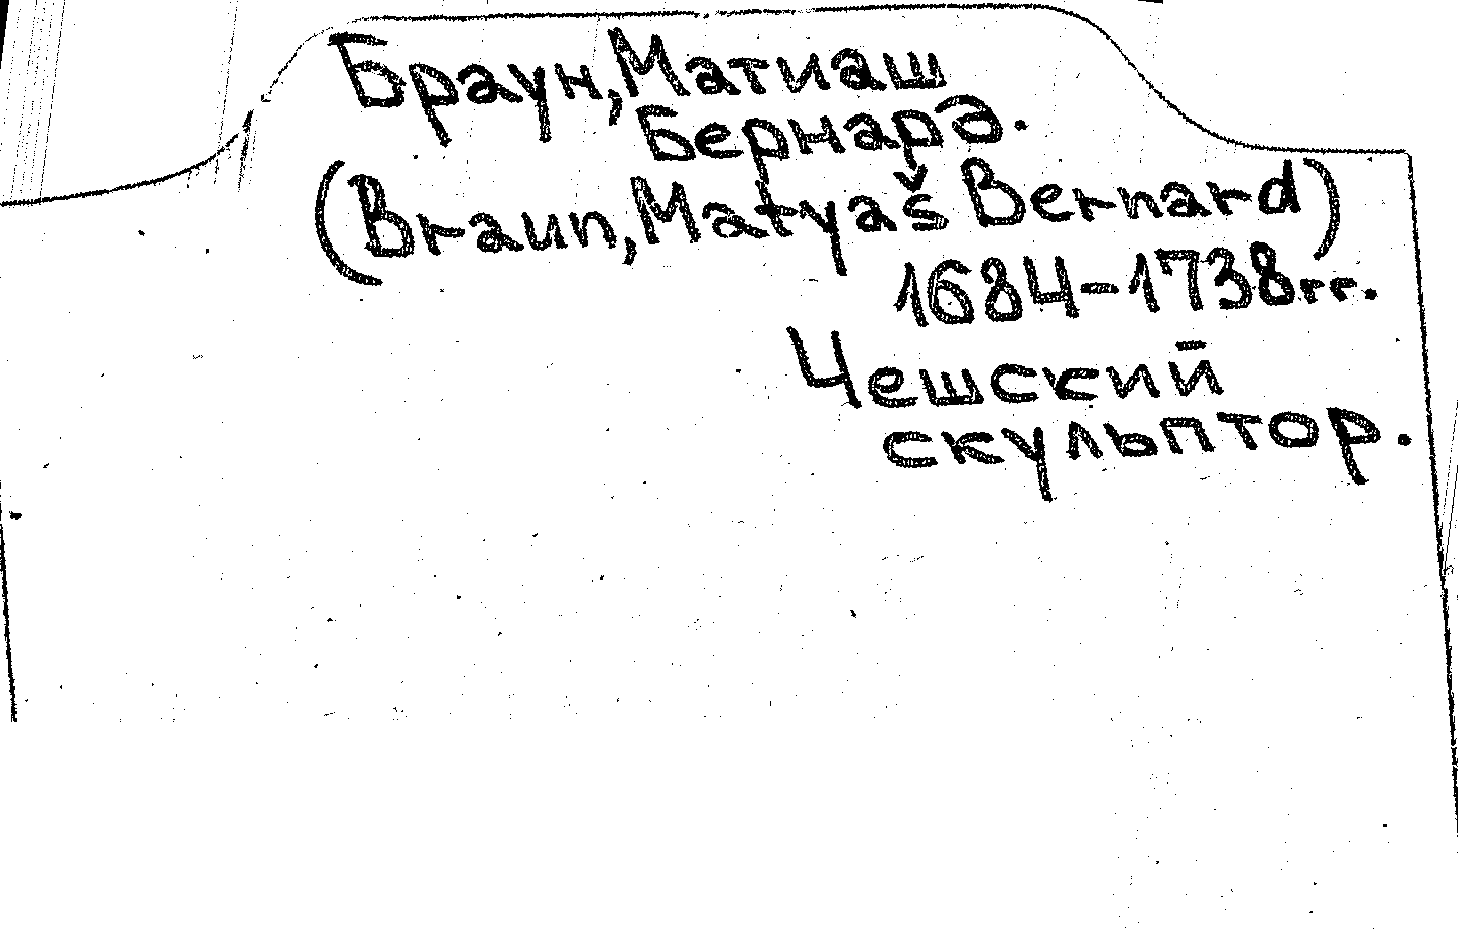 Браун, Матиаш
Бернард.
(Braun, Matyaš Bernard)
1684-1738гг.
Чешский
скульптор.